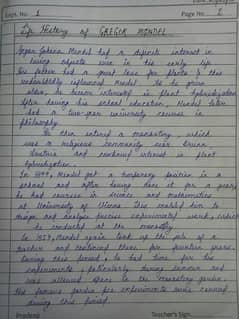 Expt. No. 1
Page No. 1
Life History of GREGOR MENDEL
Gregor Johann Mendel had a definite interest in
living objects since in his early life
His father had a great love for plants & this
influenced Mendel. As he grew
older, he became interested in plant hybridisation
After having his school education, Mendel took
had a two-year university courses in
philosophy.
He then entered a monastery, which
was a religious community near Brunn,
Austria and continued interest in plant
hybridisation.
In Mendel got a temporary position in a
school and after having done it for a year,
he had courses in Science and mathematics
at University of Vienna. This enabled him to
design and analyse precise experimental work, which
he conducted at the monastery
In 1854, Mendel again took up the job of a
teacher and continued there for fourteen years.
During this period, he had time for his
experiments, particularly during summer and
was allowed space in the monastery garden.
The garden pea experiments were carried
during this period
Teacher's Sign.